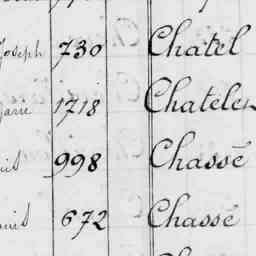 Joseph 730 Chatel
1718 Chatele
998 Chassé
672 Chassé